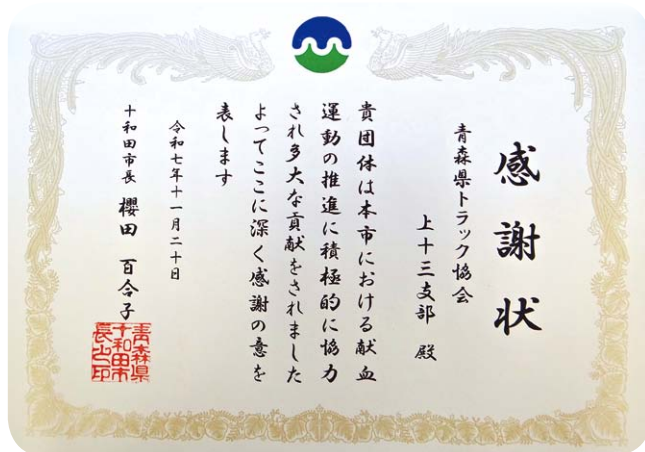 感謝状
青森県トラック協会
上十三支部 殿
貴団体は本市における献血
運動の推進に積極的に協力
され多大な貢献をされました
よってここに深く感謝の意を
表します
令和七年十一月二十日
十和田市長 櫻田 百合子
青森県
十和田市
長之印